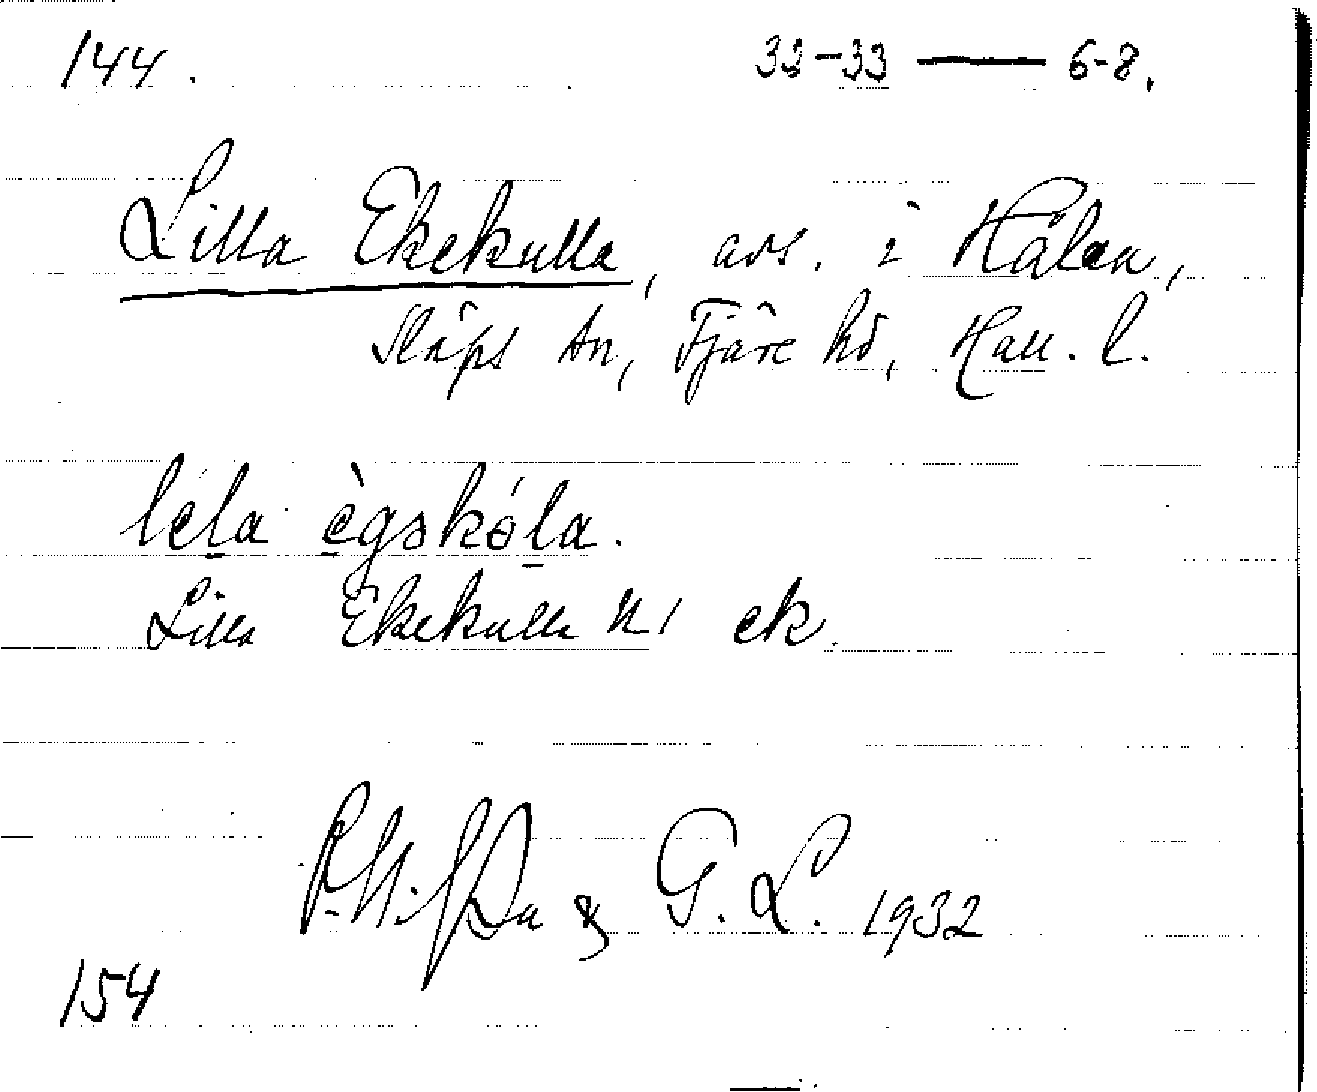 144. 32-33 — 6-8.
Lilla Ekekulla, avs. i Hålan,
Släps sn, Fjäre hd, Hall. l.
lela ègskóla.
Lilla Ekekulla ek.
& G. L. 1932
154